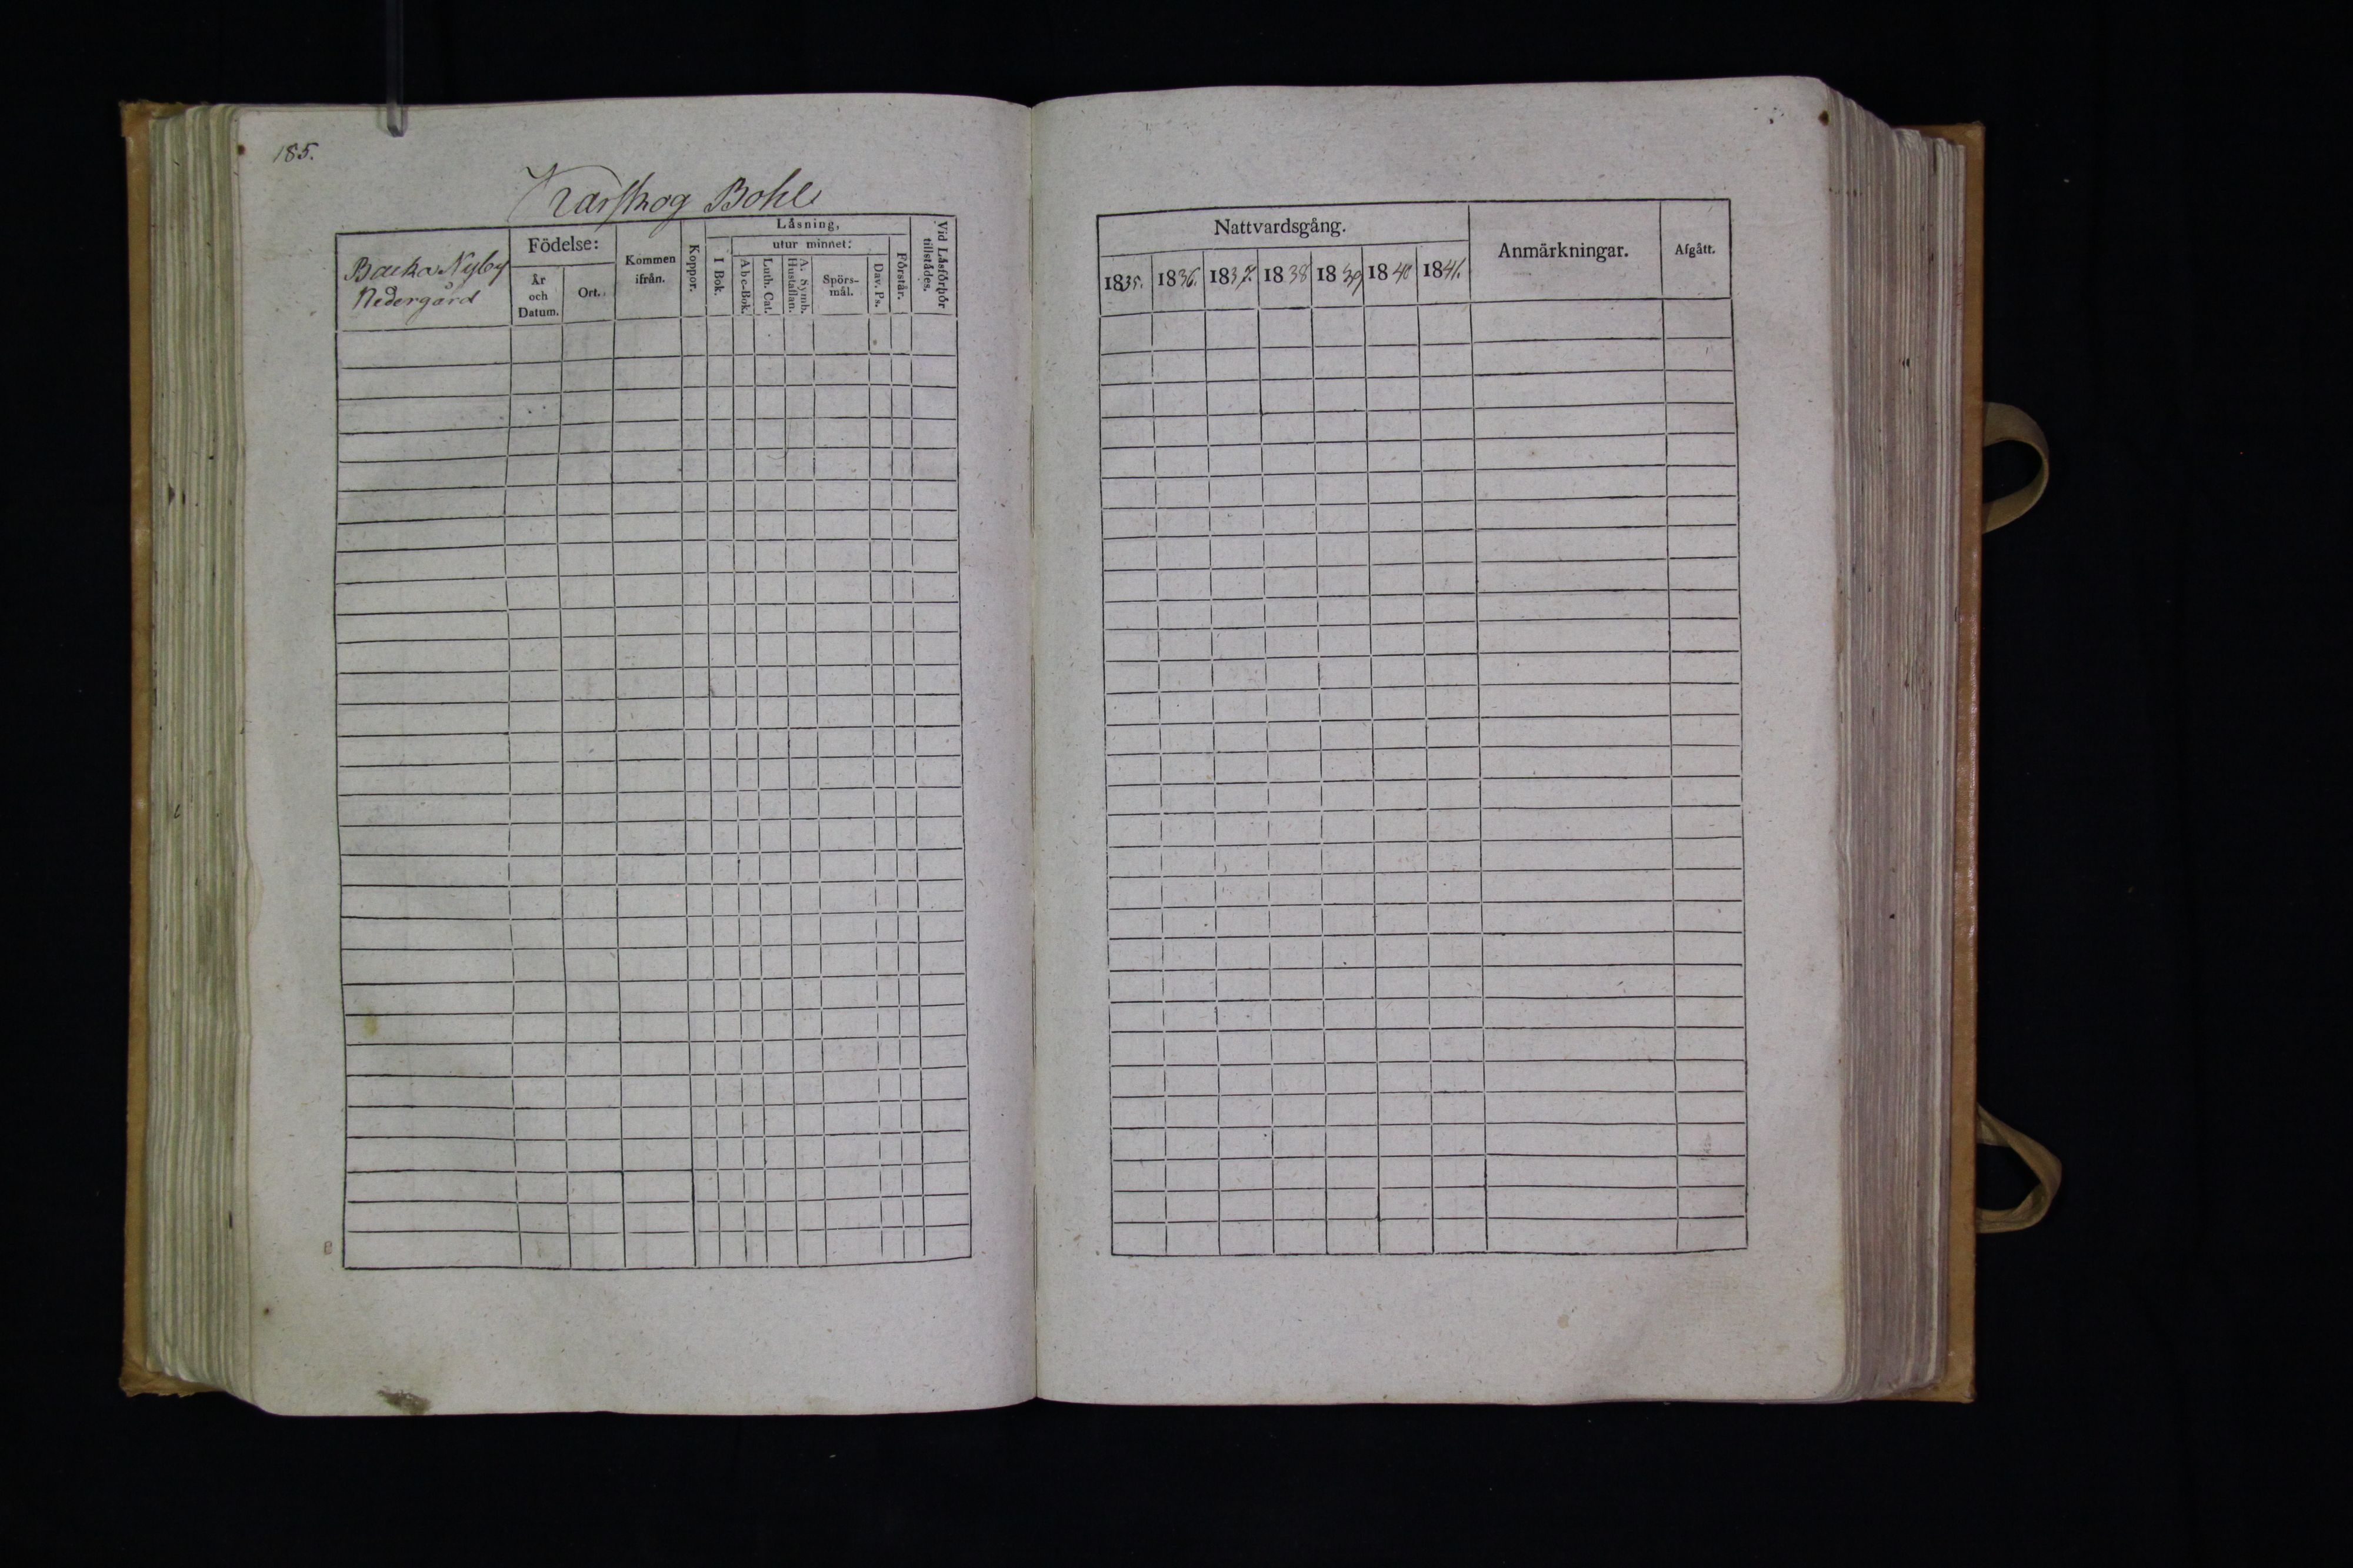 185.
Karskog Bohle
Backa Nyby
Nedergård
Födelse:
År
och
Datum.
Ort.
Kommen
ifrån.
Koppor.
Läsning,
I Bok.
utur minnet:
Abc-Bok.
Luth. Cat.
A. Symb.
Hustaflan.
Spörs-
mål.
Dav. Ps.
Förstår.
Vid Läsförhör
tillstädes.
Nattvardsgång.
1835.
1836.
1837.
1838
1839
1840
1841.
Anmärkningar.
Afgått.